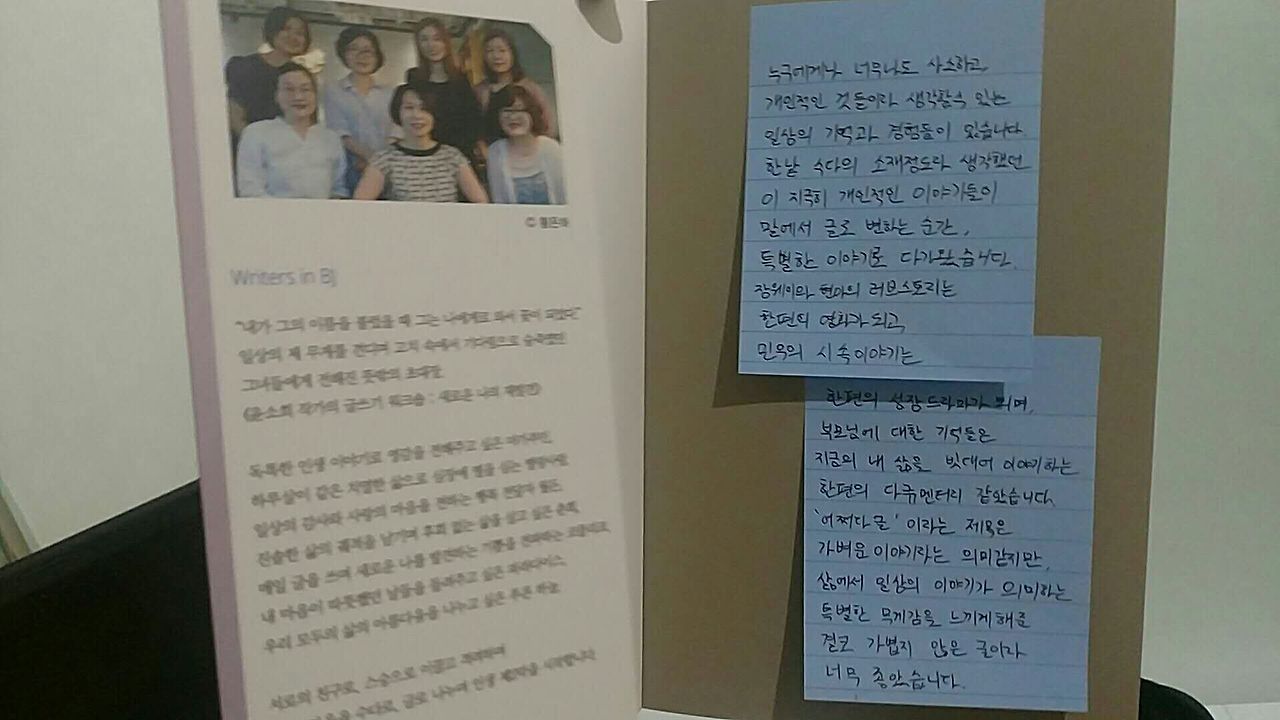 Writers in BJ
"내가 그의 이름을 불렀을 때 그는 나에게로 와서 꽃이 되었다"
일상의 제 무게를 견디며 고치 속에서 기다림으로 숨죽였던
그녀들에게 전해진 뜻밖의 초대장
《윤소희 작가의 글쓰기 워크숍 : 새로운 나의 재발견》
독특한 인생 이야기로 영감을 전해주고 싶은
하루살이 같은 치열한 삶으로 심장에 별을 심는
일상의 감사와 사랑의 마음을 전하는 행복
진솔한 삶의 궤적을 남기며 후회 없는 삶을 살고 싶은
매일 글을 쓰며 새로운 나를 발견하는 기쁨을
내 마음이 따뜻했던 날들을 들려주고 싶은 파라다이스,
우리 모두의 삶의 아름다움을 나누고 싶은 푸른 하늘
서로의 친구로, 스승으로 이끌고 격려하며
글로 나누며 인생
누군에게나 너무나도 사소하고,
개인적인 것들이라 생각할수 있는
일상의 기억과 경험들이 있습니다.
한낱 수다의 소재정도라 생각했던
이 지극히 개인적인 이야기들이
말에서 글로 변하는 순간,
특별한 이야기로 다가왔습니다.
장웨이와 현아의 러브스토리는
한편의 영화가 되고,
민우의 시 속 이야기는
한편의 성장드라마가 되며,
부모님에 대한 기억들은
지금의 내 삶을 빗대어 이야기하는
한편의 다큐멘터리 같았습니다.
'어쩌다 글' 이라는 제목은
가벼운 이야기라는 의미같지만,
삶에서 일상의 이야기가 의미하는
특별한 무게감을 느끼게해준
결코 가볍지 않은 글이라
너무 좋았습니다.